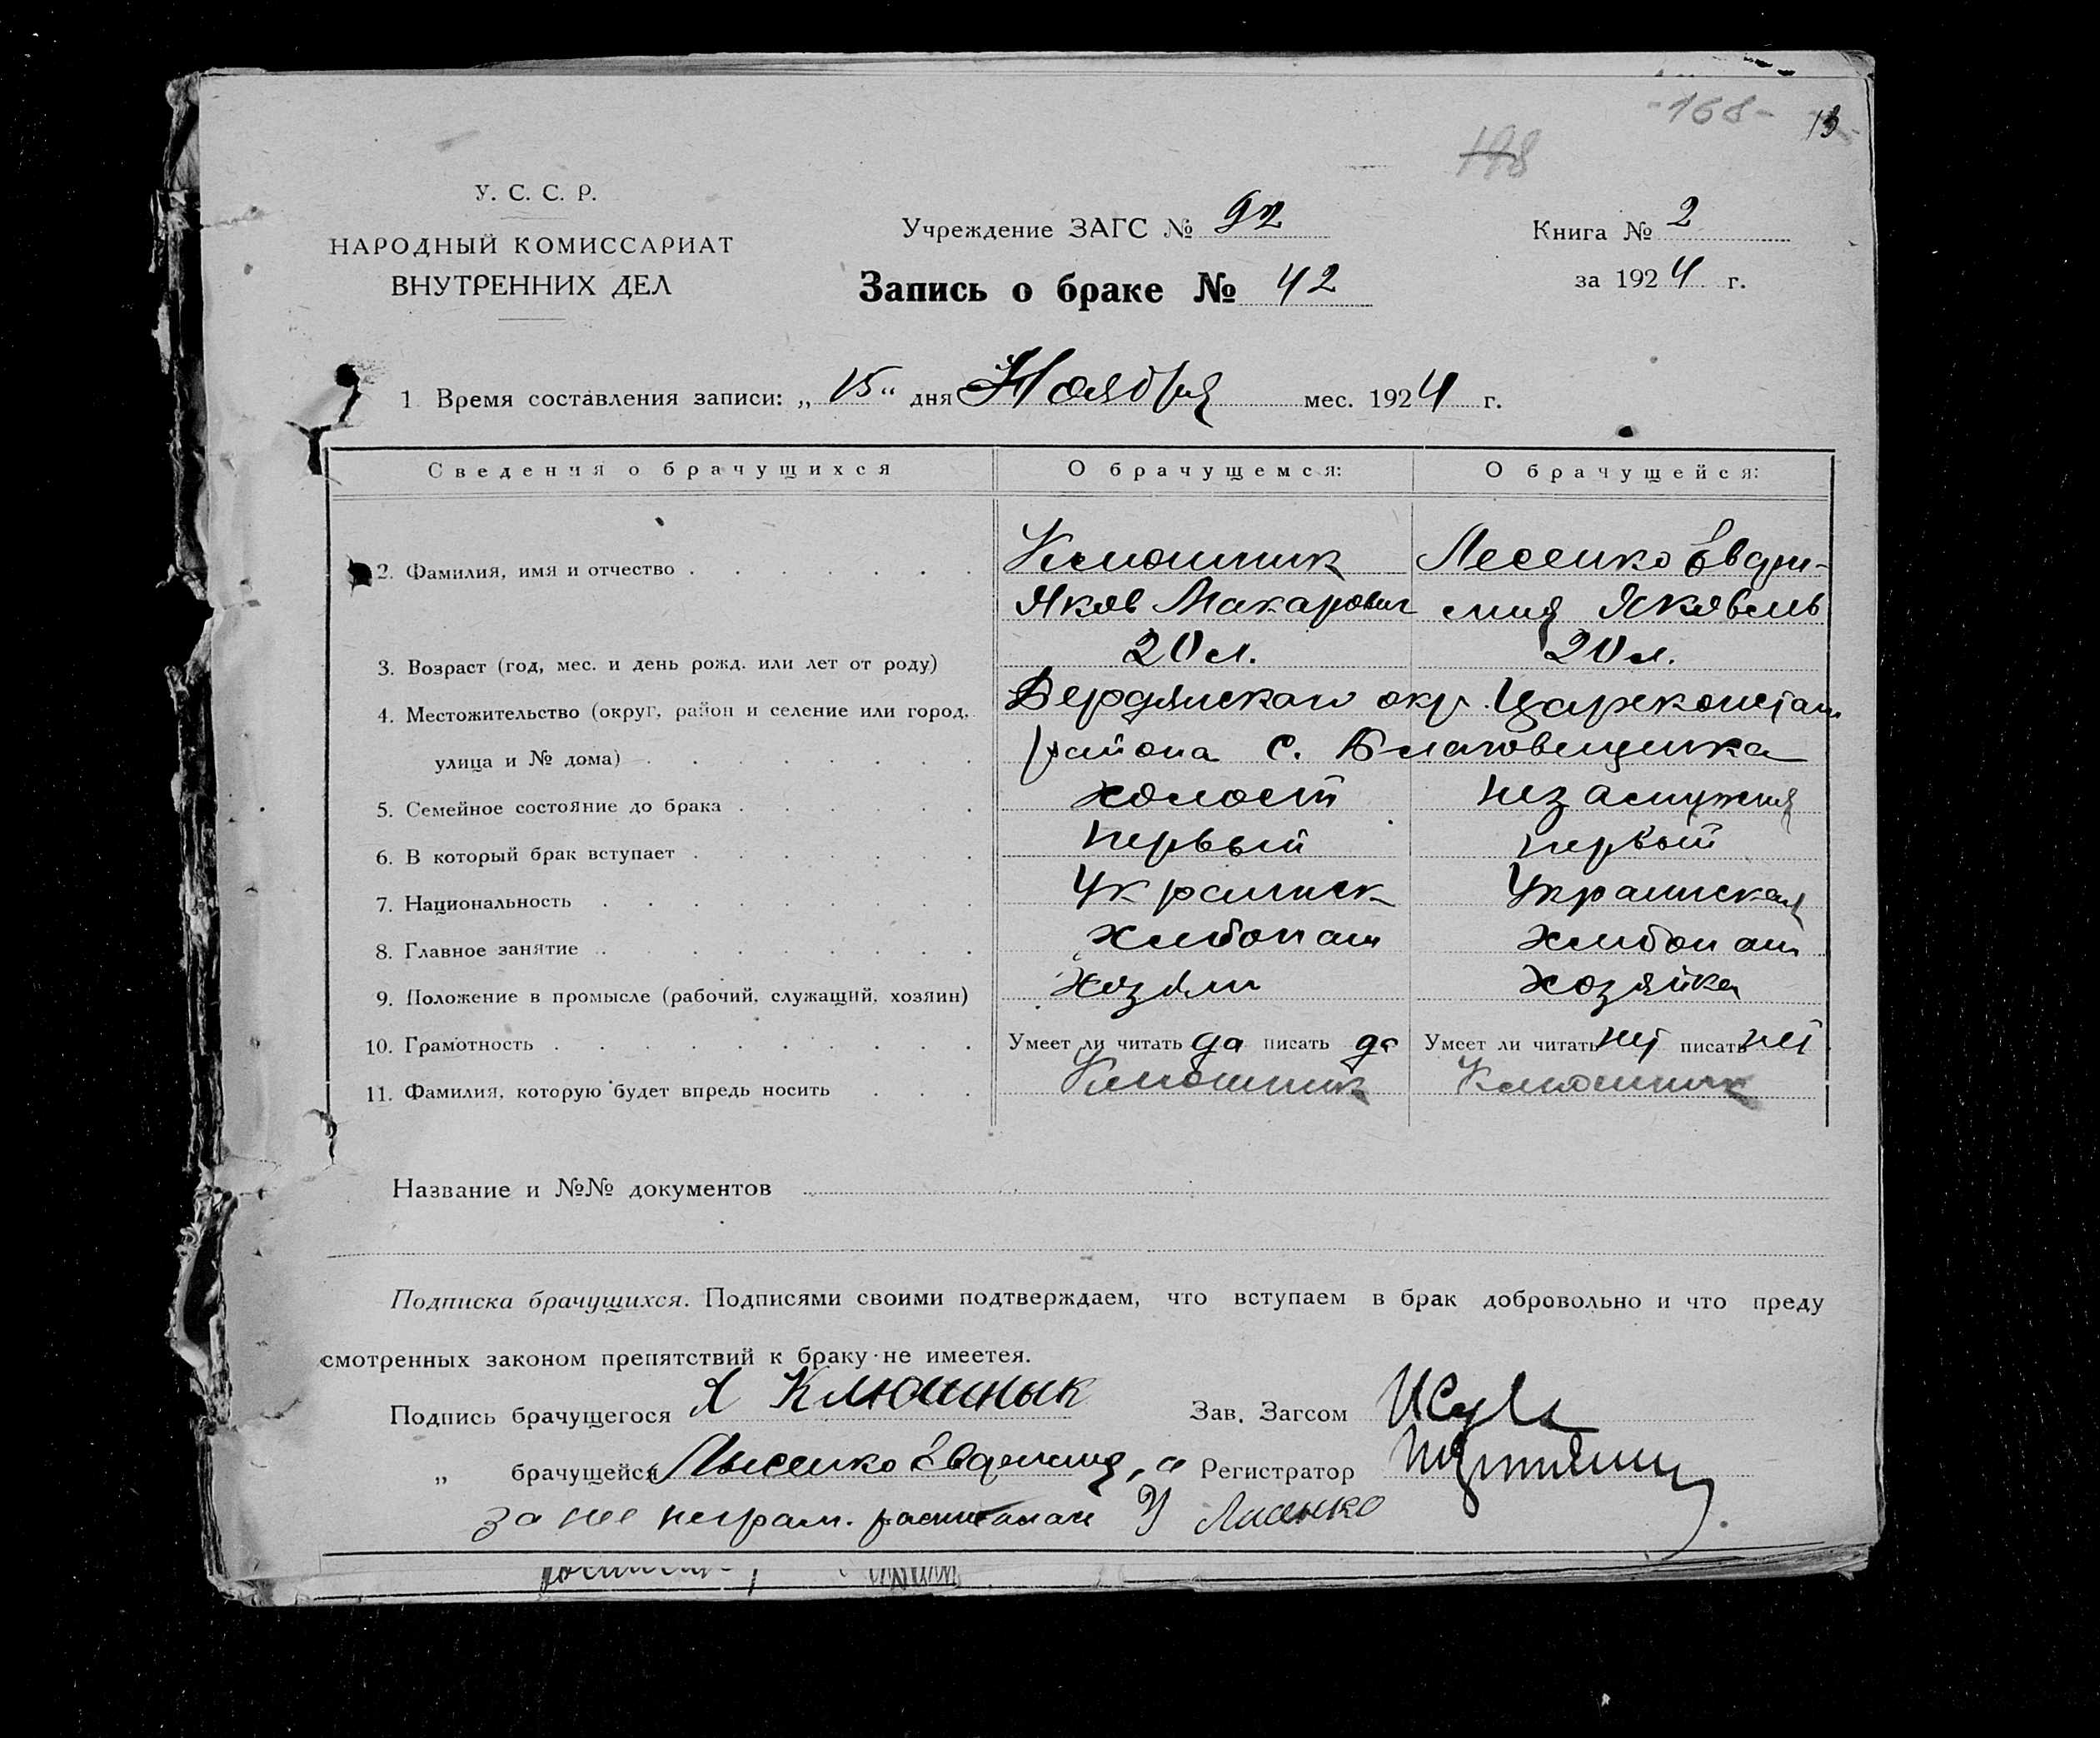 -168-
13
198
У. С. С. Р.
НАРОДНЫЙ КОМИССАРИАТ
ВНУТРЕННИХ ДЕЛ
Учреждение ЗАГС № 92
Книга № 2
Запись о браке № 42
за 1924 г.
1 Время составления записи: „ 15 “ дня Ноября мес. 1924 г.
Сведения о брачущихся О брачущемся: О брачущейся:
2. Фамилия, имя и отчество Клюшник Лесенко Евдки-
Яков Макарович мия Яковлів
3. Возраст (год, мес. и день рожд. или лет от роду) 20 л. 20 л.
4. Местожительство (округ, район и селение или город, Бердянского окр. Цареконстан
улица и № дома) района с. Благовещенка
5. Семейное состояние до брака холост незамужняя
6. В который брак вступает первый первый
7. Национальность Украинск Украинская
8. Главное занятие хлибопаш хлибопаш
9. Положение в промысле (рабочий, служащий, хозяин) хозяин хозяйка
10. Грамотность Умеет ли читать да писать да Умеет ли читать нет писать нет
11. Фамилия, которую будет впредь носить Клюшник Клюшник
Название и №№ документов
Подписка брачущихся. Подписями своими подтверждаем, что вступаем в брак добровольно и что преду
смотренных законом препятствий к браку не имеетея.
Подпись брачущегося Я Клюшнык Зав. Загсом
„ брачущейся Лысенко Регистратор
за нее неграм. расписался У Лисенко